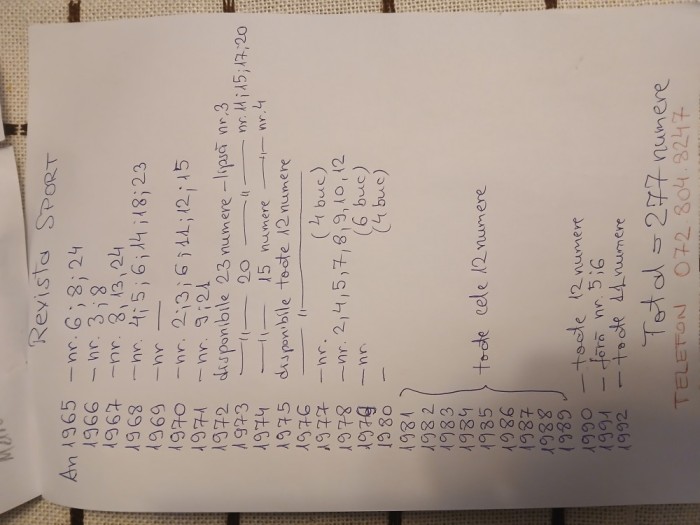 Revista SPORT
An 1965 – nr. 6; 8; 24
1966 – nr. 3; 8
1967 – nr. 8, 13, 24
1968 – nr. 4; 5; 6; 14; 18; 23
1969 – nr —
1970 – nr. 2; 3; 6; 11; 12; 15
1971 – nr. 9; 21
1972 disponibile 23 numere – lipsă nr. 3
1973 —〃— 20 —〃— nr. 11; 15; 17; 20
1974 —〃— 15 numere —〃— nr. 4
1975 disponibile toate 12 numere
1976 —〃—
1977 – nr. (4 buc)
1978 – nr. 2, 4, 5, 7, 8, 9, 10, 12
1979 – nr. (6 buc)
1980 – (4 buc)
1981
1982
1983
1984
1985 toate cele 12 numere
1986
1987
1988
1989
1990 – toate 12 numere
1991 – fără nr. 5; 6
1992 – toate 11 numere
Total = 277 numere
TELEFON 072 804.8247